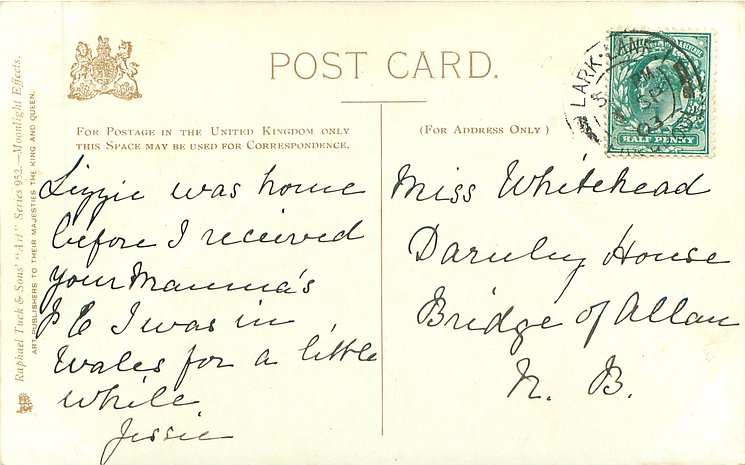 POST CARD.
FOR POSTAGE IN THE UNITED KINGDOM ONLY
THIS SPACE MAY BE USED FOR CORRESPONDENCE.
(FOR ADDRESS ONLY)
Lizzie was home
before I received
your Mamma's
P C I was in
Wales for a little
while
Jessie
Miss Whitehead
Darnley House
Bridge of Allan
N. B.
LARK LANE
03
HALF PENNY
Raphael Tuck & Sons' "Art" Series 952.—Moonlight Effects.
ART PUBLISHERS TO THEIR MAJESTIES THE KING AND QUEEN.